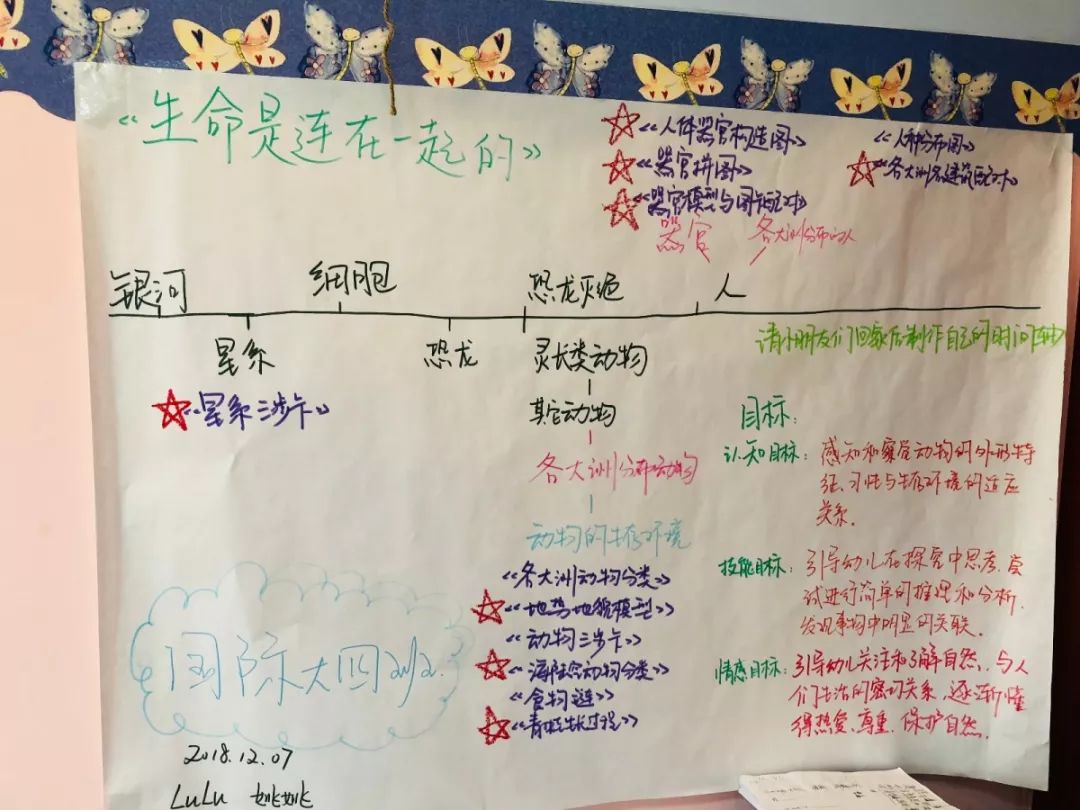 《生命是连在一起的》
《人体器官构造图》
《器官拼图》
《器官模型与图卡配对》
《人种分布图》
《各大洲名建筑配对》
器官
各大洲分布的人
银河
细胞
恐龙灭绝
人
星系
恐龙
灵长类动物
请小朋友们回家后制作自己的时间轴
《星系三步卡》
其它动物
各大洲分布动物
动物的生存环境
《各大洲动物分类》
《地势地貌模型》
《动物三步卡》
《海陆空动物分类》
《食物链》
《青蛙生长过程》
目标:
认知目标:感知和察觉动物的外形特
征、习性与生存环境的适应
关系.
技能目标:引导幼儿在探究中思考.尝
试进行简单的推理和分析.
发现事物中明显的关联.
情感目标:引导幼儿关注和了解自然,与人
们生活的密切关系,逐渐懂
得热爱、尊重、保护自然.
国际大四班.
2018.12.07
LuLu 姚姚